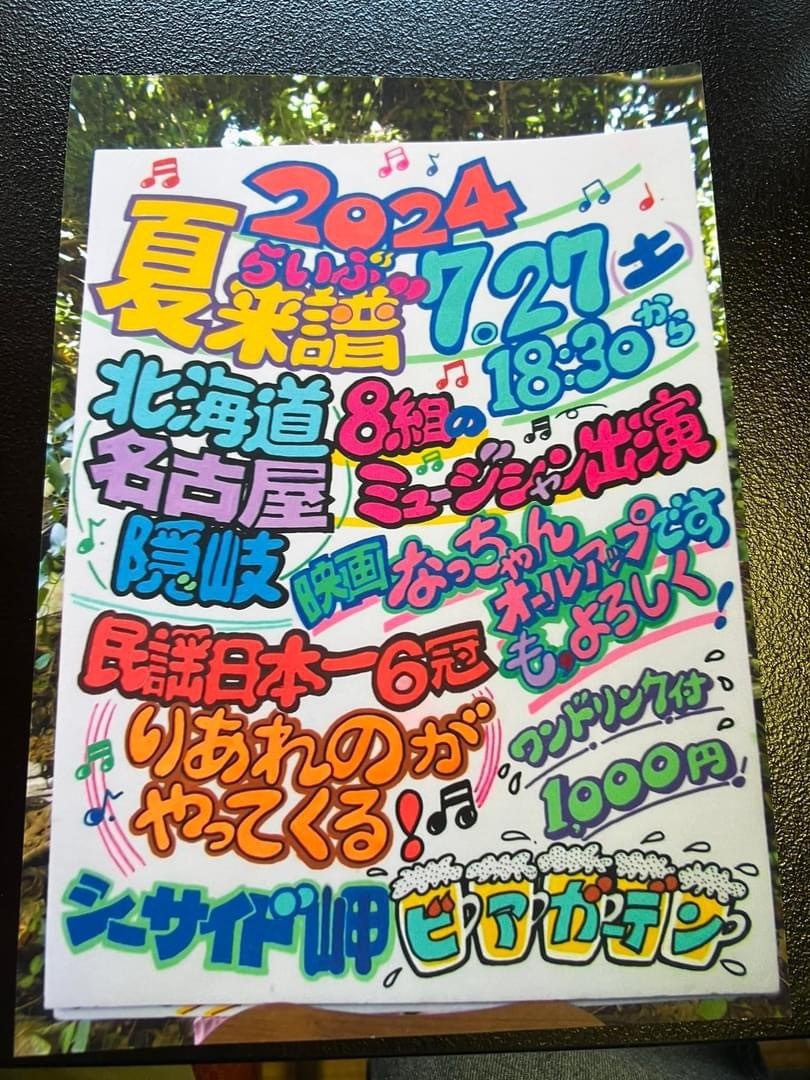 2024
夏
らいぶ
来譜
7.27(土)
18:30から
北海道
名古屋
隠岐
8組の
ミュージシャン出演
映画なっちゃん
オールアップです
も,よろしく!
民謡日本一6冠
りあれのが
やってくる!
ワンドリンク付
1,000円!
シーサイド岬
ビアガーデン